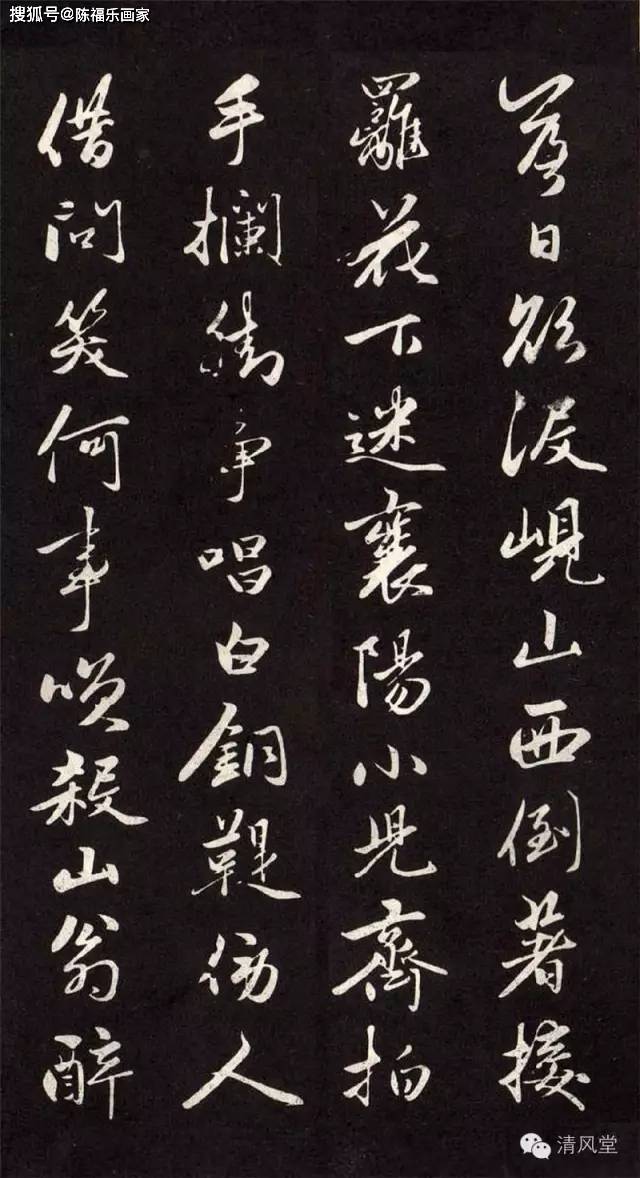 搜狐号@陈福乐画家
落日欲没峴山西倒著接
䍦花下迷襄陽小兒齊拍
手攔街争唱白銅鞮傍人
借問笑何事咲殺山翁醉
清风堂